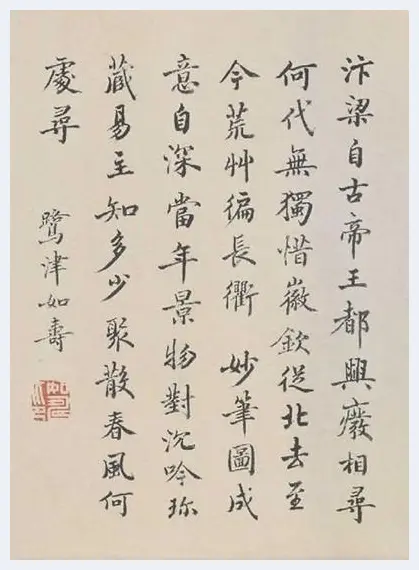 汴梁自古帝王都興廢相尋
何代無獨惜徽欽從北去至
今荒艸徧長衢　妙筆圖成
意自深當年景物對沉吟珎
藏易主知多少聚散春風何
處尋
鷺津如壽